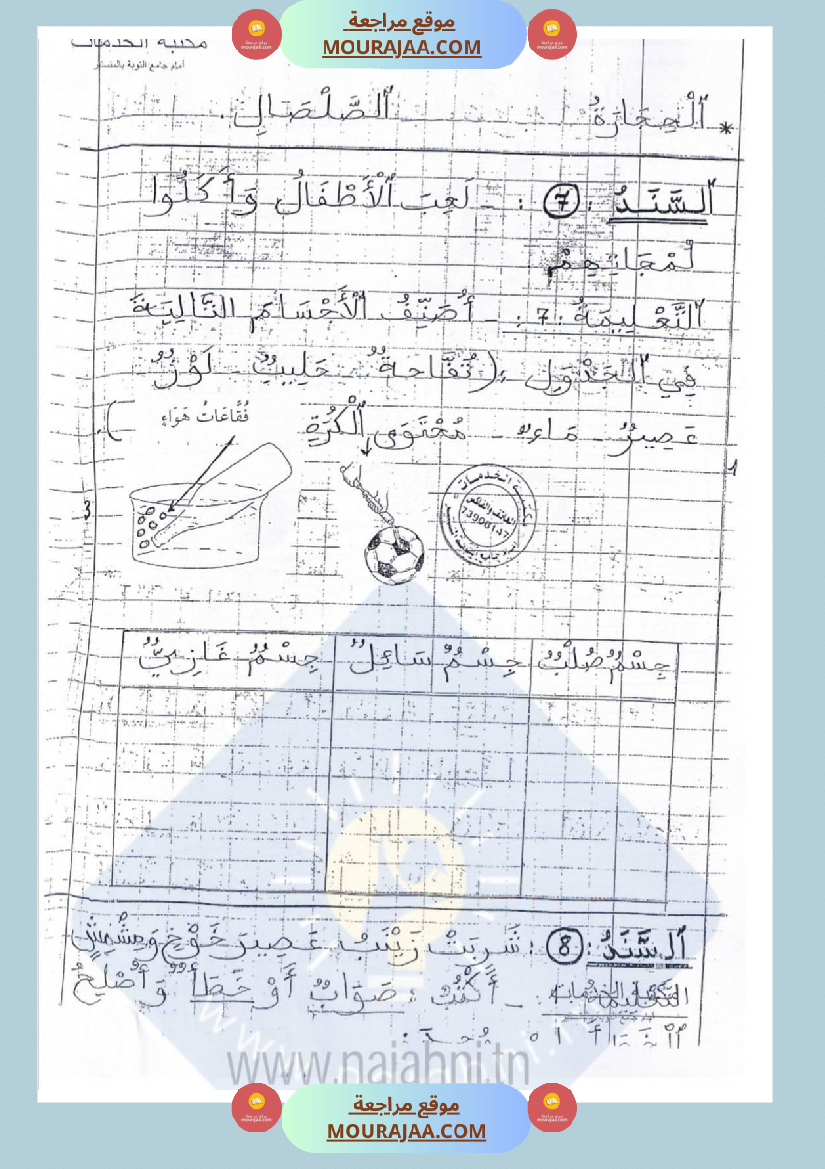 موقع مراجعة
MOURAJAA.COM
مكتبة الخدمات
أمام جامع التوبة بالمنستير
* ٱلْحِجَارَةُ ٱلصَّلْصَالِ.
ٱلسَّنَدُ 7 : - لَعِبَ ٱلْأَطْفَالُ وَأَكَلُوا
لُمْجَاتِهِمْ
ٱلتَّعْلِيمَةُ 7 : - أُصَنِّفُ ٱلْأَجْسَامَ التَّالِيَةَ
فِي ٱلْجَدْوَلِ : (تُفَّاحَةٌ - حَلِيبٌ - لَوْزٌ
عَصِيرٌ - مَاءٌ - مُحْتَوَى ٱلْكُرَةِ
فُقَّاعَاتُ هَوَاءٍ ).
1
3
مكتبة الخدمات
الهاتف والفاكس
73906147
جِسْمٌ صُلْبٌ جِسْمٌ سَائِلٌ جِسْمٌ غَازِيٌّ
ٱلسَّنَدُ 8 : شَرِبَتْ زَيْنَبُ عَصِيرَ خَوْخٍ وَمِشْمِشٍ
التعليمة - أَكْتُبُ : صَوَابٌ أَوْ خَطَأٌ وَأُصْلِحُ
www.najahni.tn
موقع مراجعة
MOURAJAA.COM